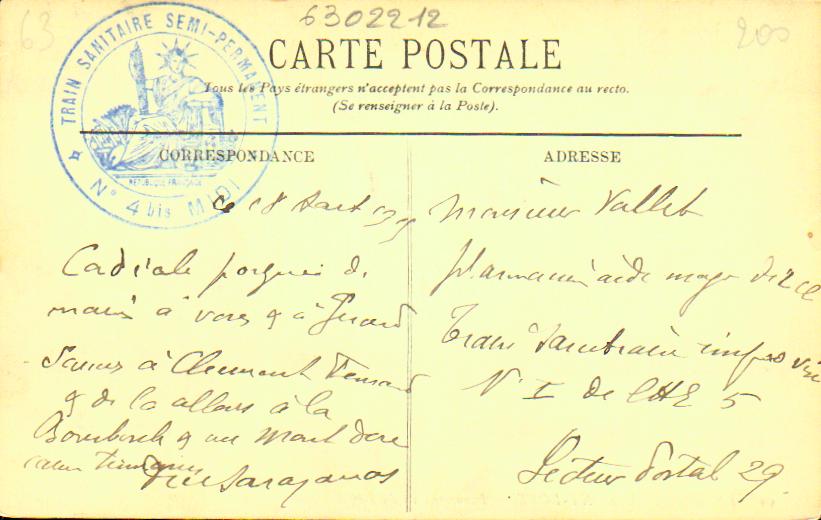 6302212
63
200
TRAIN SANITAIRE SEMI-PERMANENT
N° 4 bis MIDI
REPUBLIQUE FRANÇAISE
CARTE POSTALE
Tous les Pays étrangers n'acceptent pas la Correspondance au recto.
(Se renseigner à la Poste).
CORRESPONDANCE
ce 18 Aout
Cordiale poignée de
main à vous & à Girard
Sommes à Clermont Ferrand
& de là allons à la
Bourboule & au Mont Dore
ADRESSE
Monsieur Vallet
pharmacien aide major de 2 cl
Train Sanitaire improvisé
N° I de l'HE 5
Secteur Postal 29.